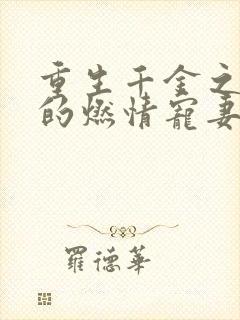 重生千金之
的燃情寵妻
羅德華